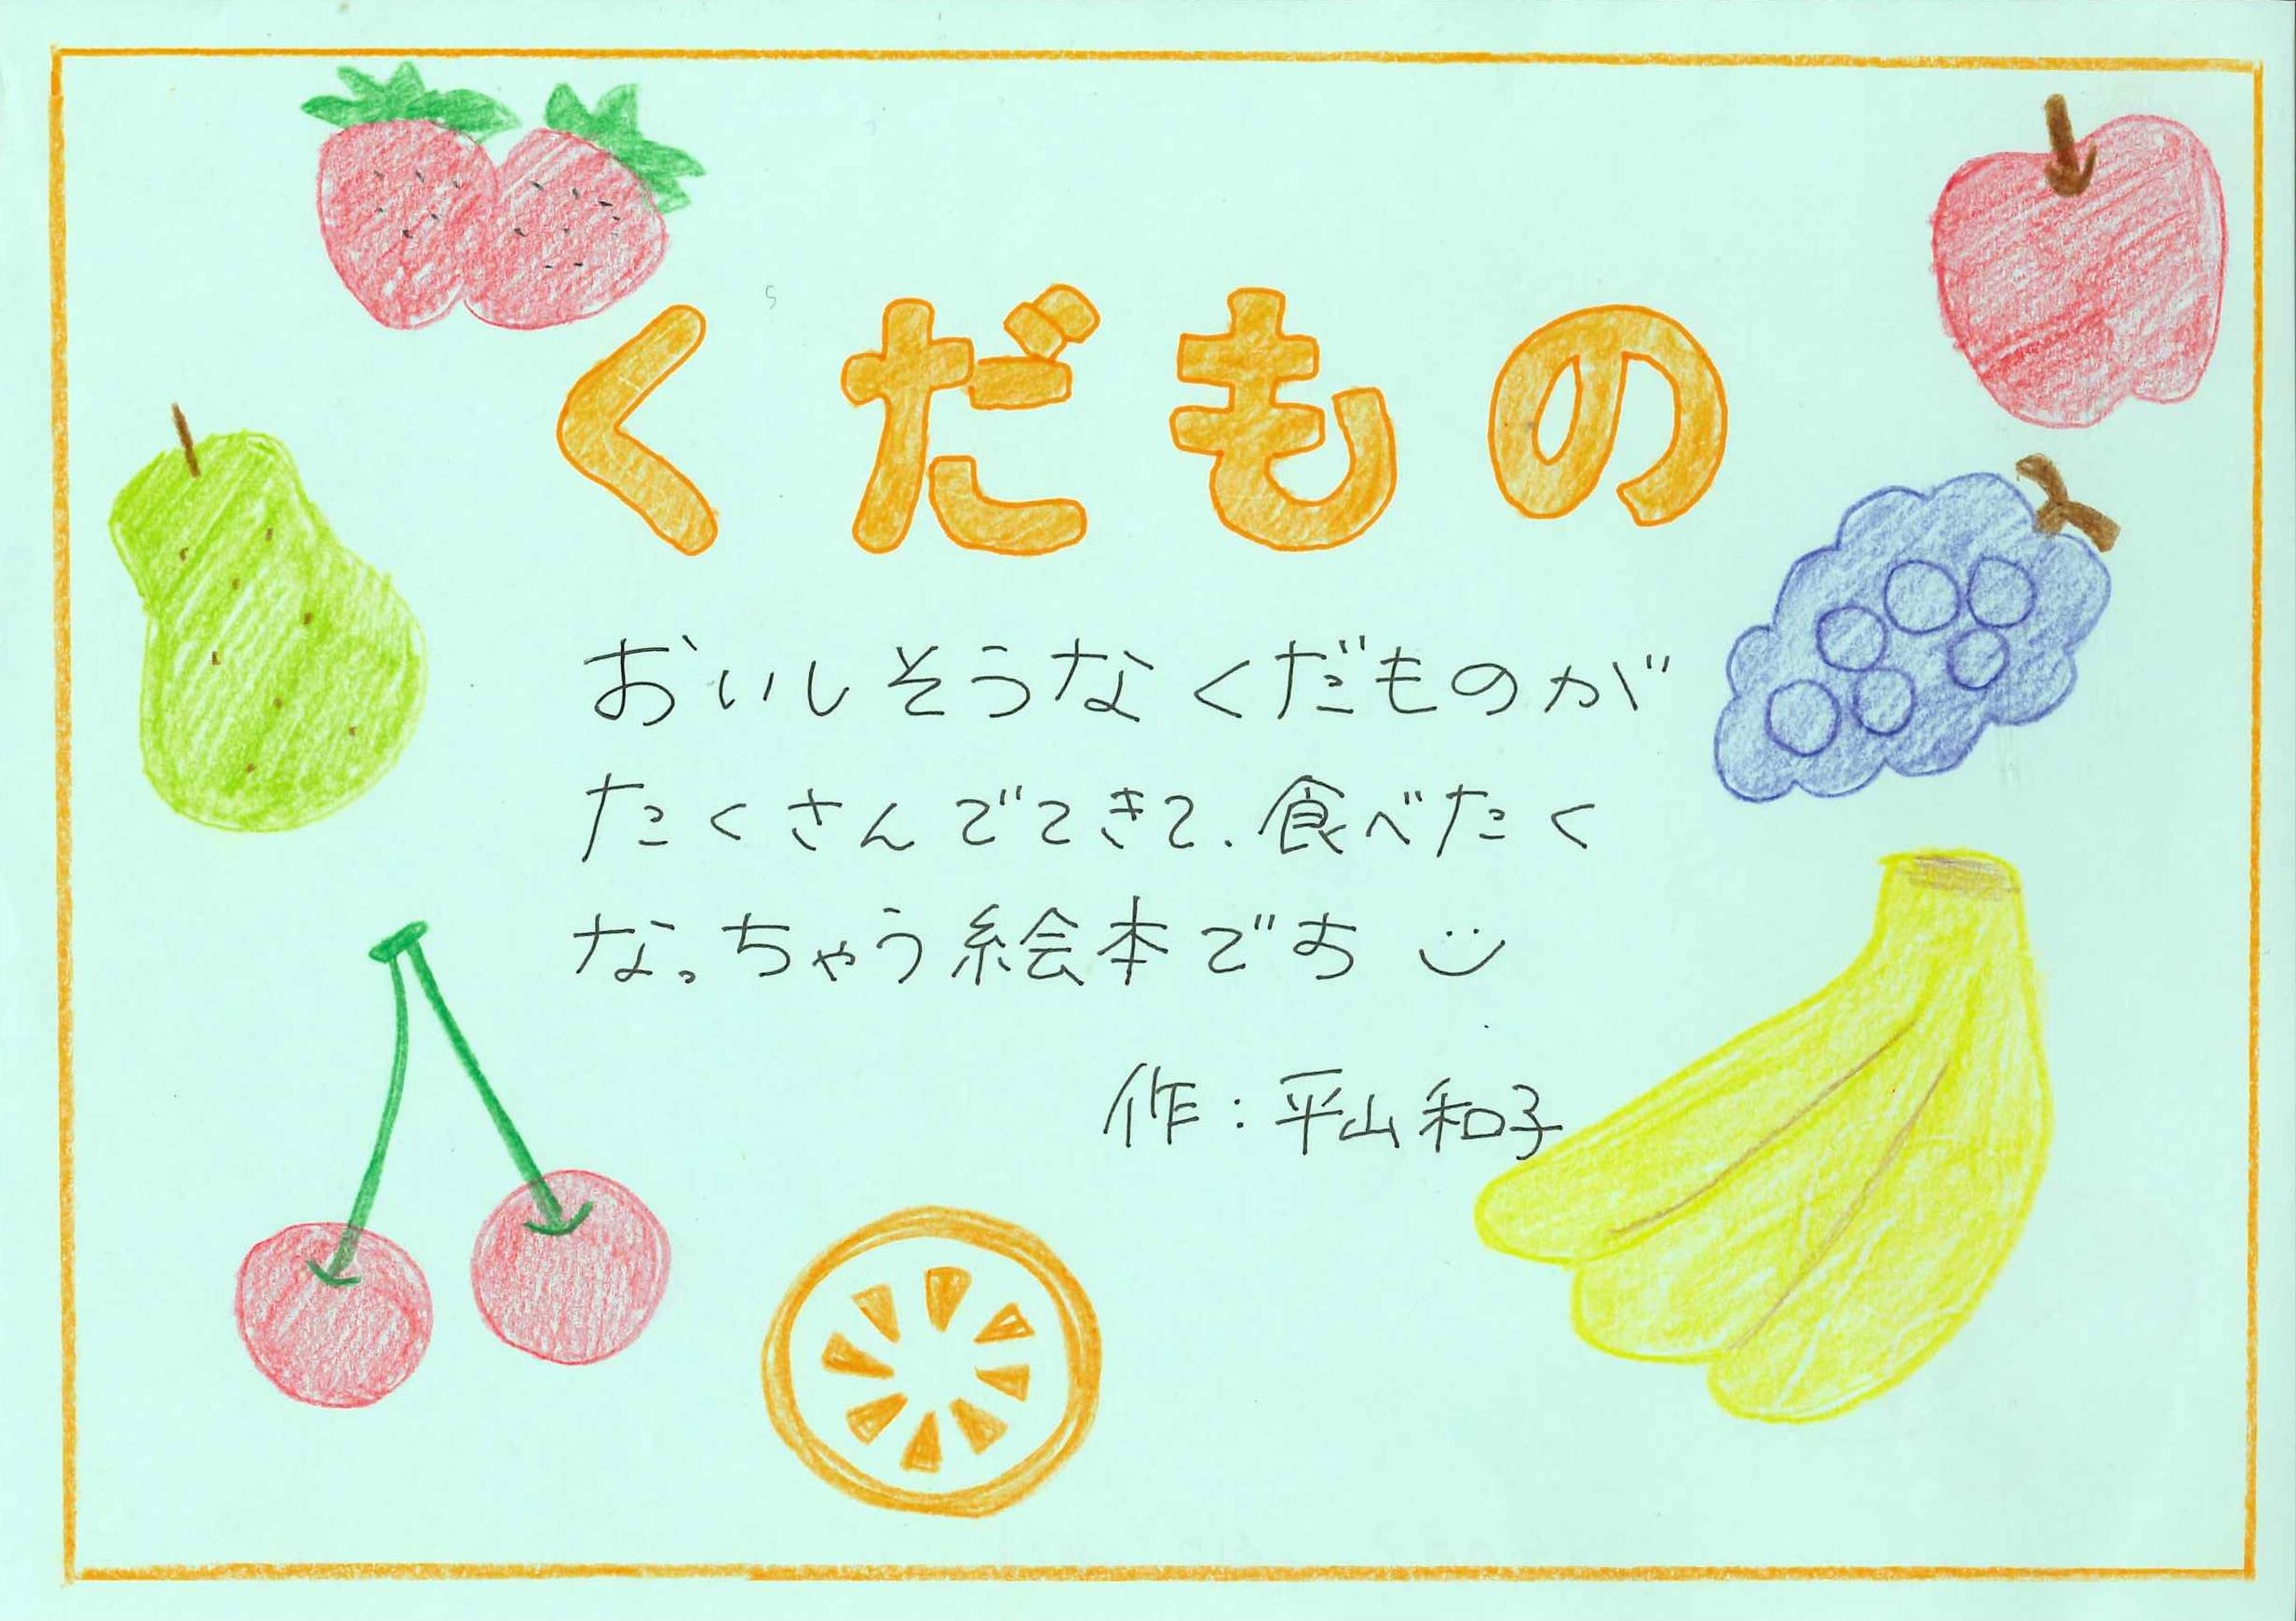 くだもの
おいしそうなくだものが
たくさんでてきて、食べたく
なっちゃう絵本です
作:平山和子